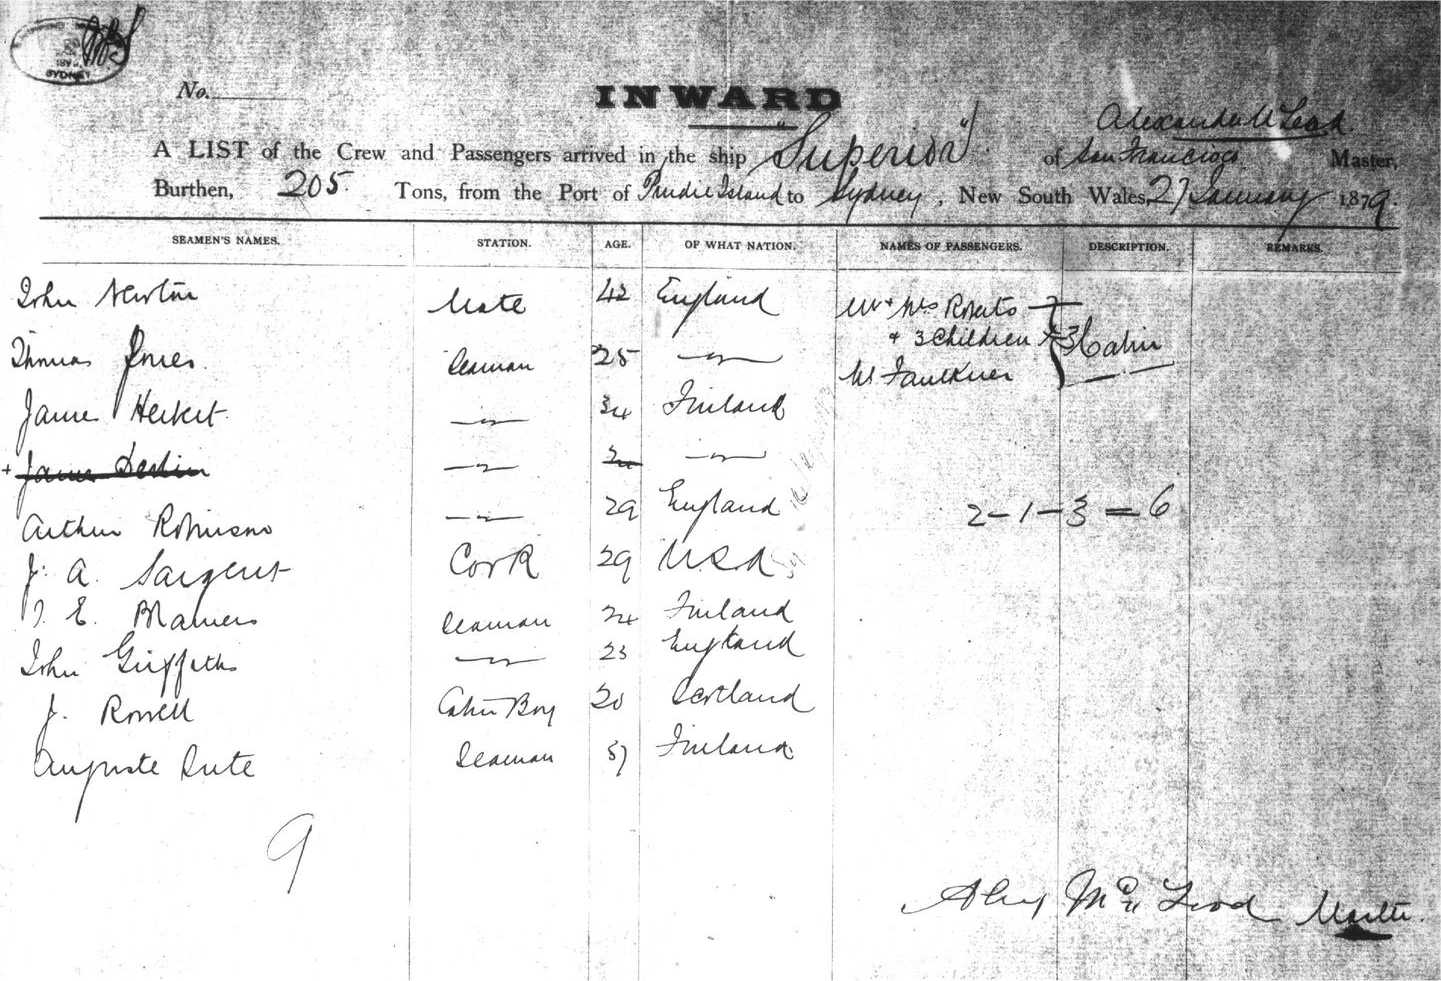 SYDNEY
No.
INWARD
Alexander McLeod
A LIST of the Crew and Passengers arrived in the ship "Superior" of San Francisco Master,
Burthen, 205 Tons, from the Port of Island to Sydney, New South Wales, 27 January 1879.
SEAMEN'S NAMES. STATION. AGE. OF WHAT NATION. NAMES OF PASSENGERS. DESCRIPTION. REMARKS.
John Newton Mate 42 England Mr & Mrs Roberts
Thomas Jones Seaman 25 —"— & 3 Children 3 Cabin
James Herbert —"— 34 Finland Mr Faulkner
+ James —"— —"—
Arthur Robinson —"— 29 England 2-1-3=6
J. A. Sargent Cook 29 U.S.A
J. E. Seaman 24 Finland
John Griffiths —"— 23 England
J. Rowell Cabin Boy 20 Scotland
Auguste Seaman 37 Finland
9
Alex McLeod Master.